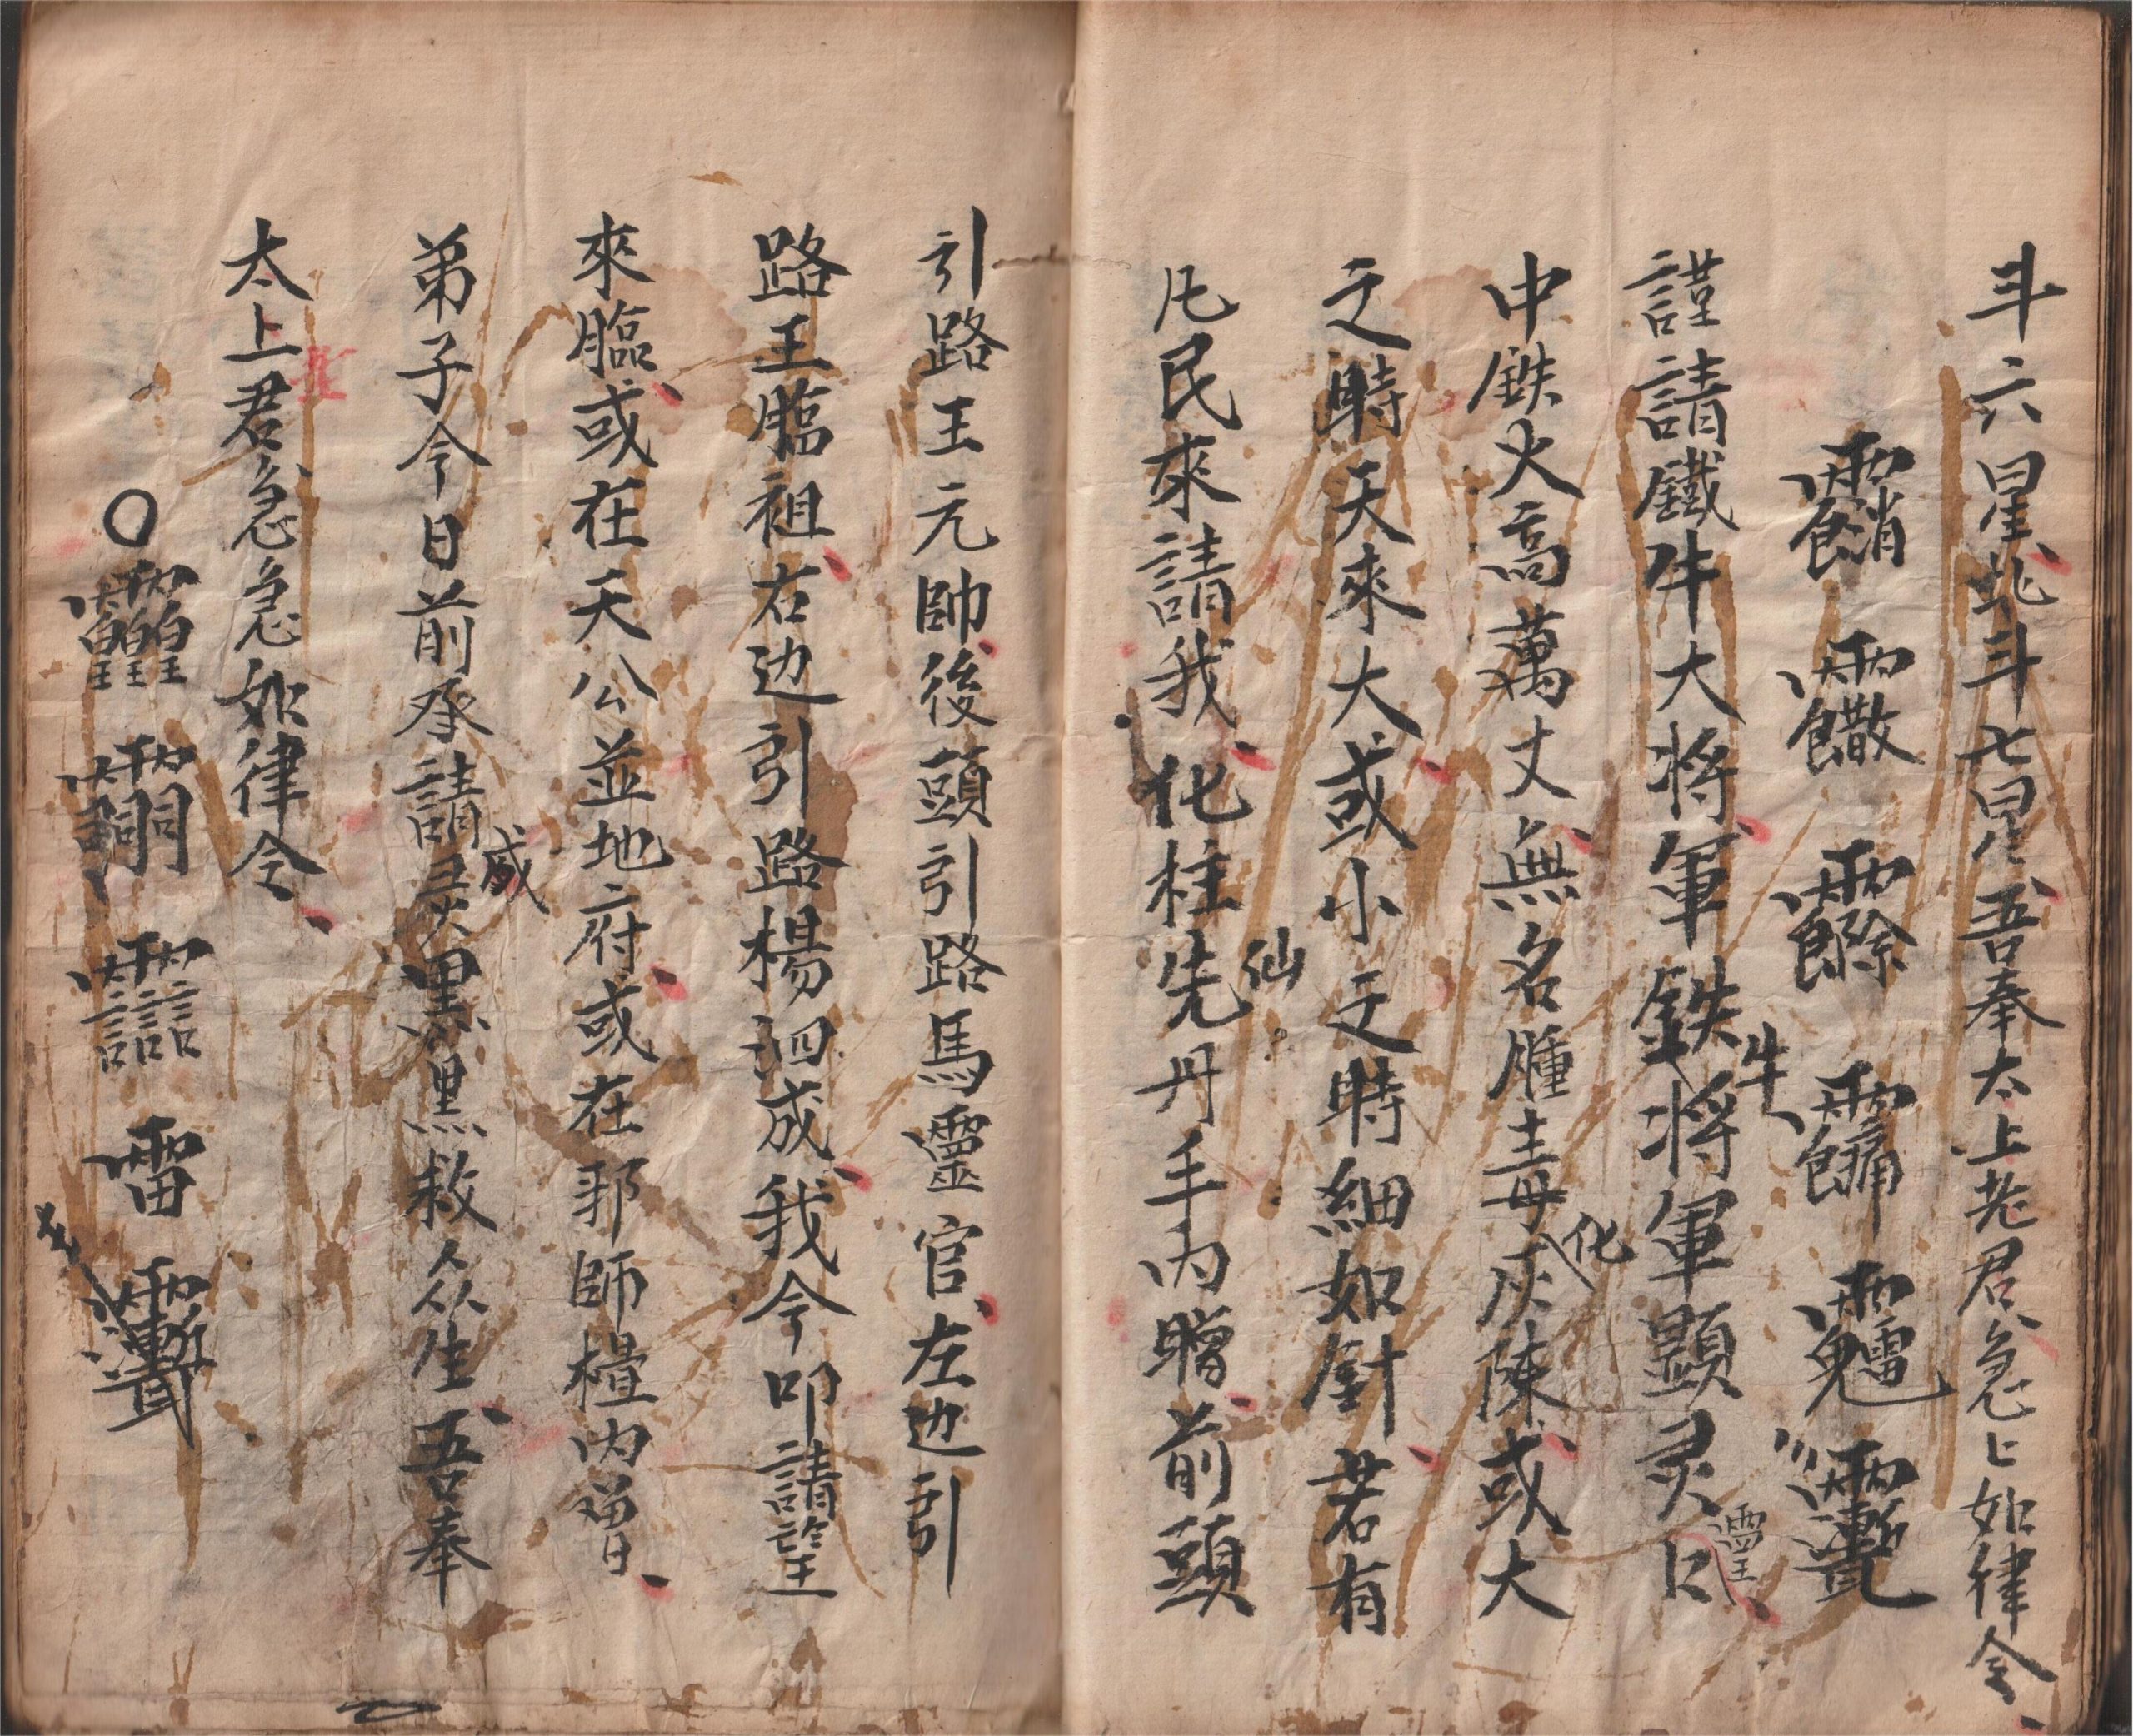 斗六星北斗七星吾奉太上老君急〻如律令
謹請鐵牛大将軍鉄牛将軍顕灵靈口
中鉄火高萬丈無名腫毒化灰陳或大
之時天來大或小之時細如針若有
凡民來請我化柱先仙丹手内贈前頭
引路王元帥後頭引路馬靈官左边引
路王臨祖右边引路楊泗成我今叩請望
來臨或在天公並地府或在邪師檀内曽
弟子今日前來請灵威黑黑救众生吾奉
太上君急急如律令
〇 雷